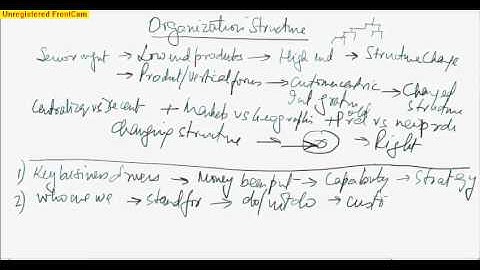 Unregistered FrontCam
Organization Structure
Senior mgmt → Low end products → High end → Structure Change
→ Product/Vertical focus → Customer centric → Changed Structure
Int gration
Centralizg vs Decent + Markets vs Geographi + Prod vs new prod
Changing structure → → Right
1) Key business drivers → Money being put → Capability → Strategy
2) who we we → stand for → do/not do → custo